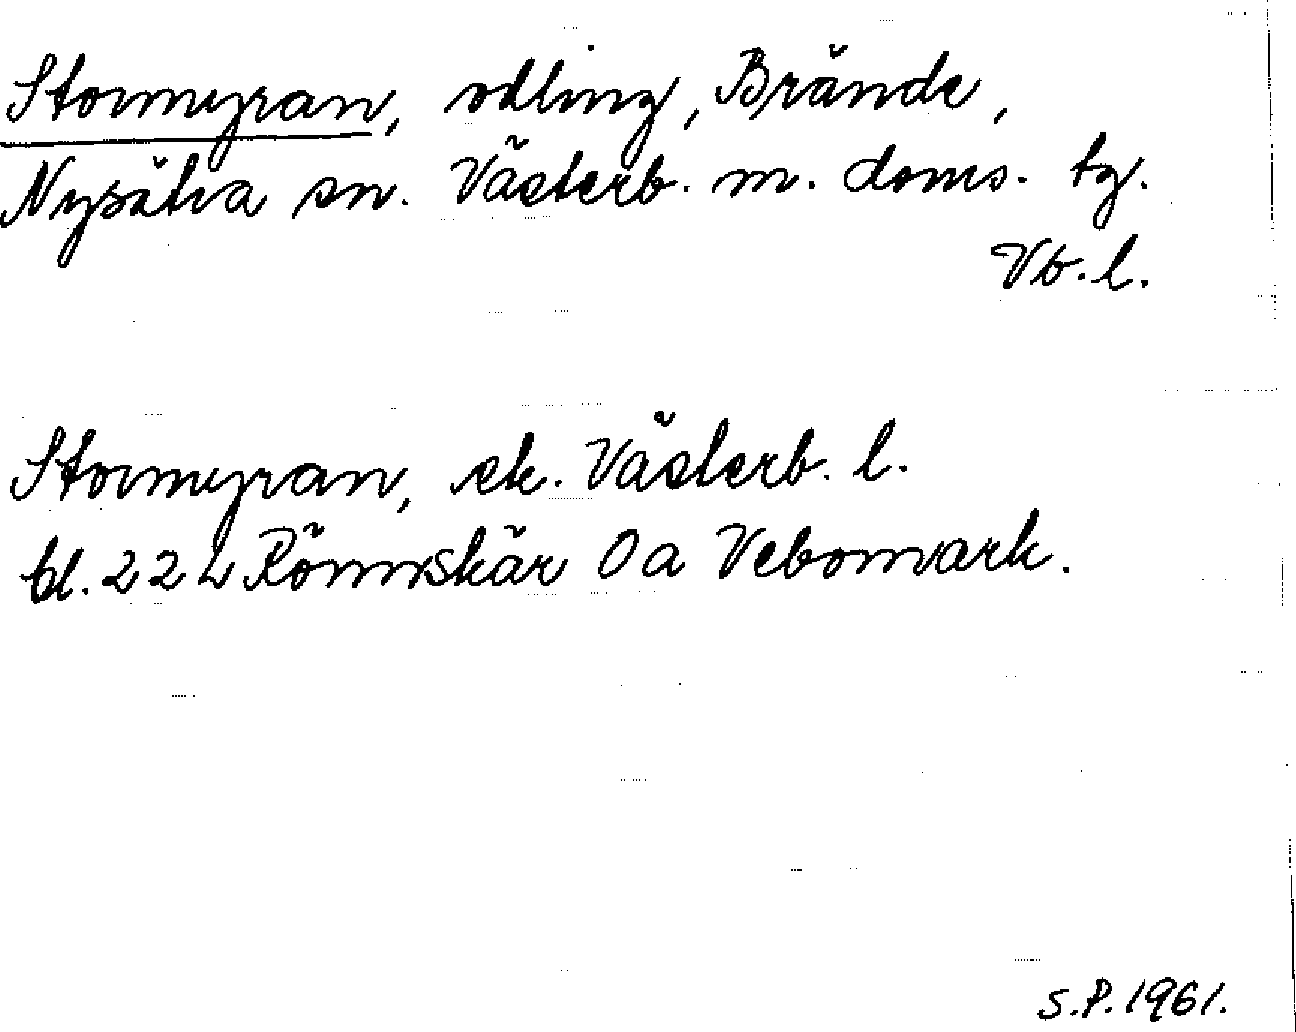 Stormyran, odling, Brände,
Nysätra sn. Västerb. m. doms. tg.
Vb. l.
Stormyran, ek. Västerb. l.
bl. 22 L Rönnskär 0 a Vebomark.
S.P. 1961.